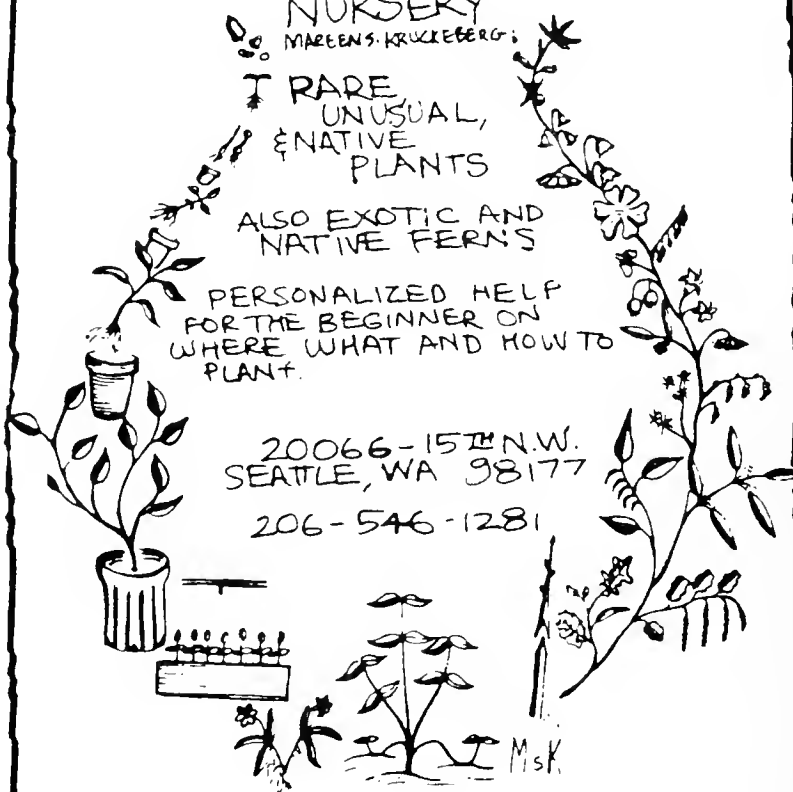 NURSERY
MAREEN S. KRUCKEBERG
RARE
UNUSUAL,
& NATIVE
PLANTS
ALSO EXOTIC AND
NATIVE FERNS
PERSONALIZED HELP
FOR THE BEGINNER ON
WHERE WHAT AND HOW TO
PLANT.
20066-15TH N.W.
SEATTLE, WA 98177
206-546-1281
MsK